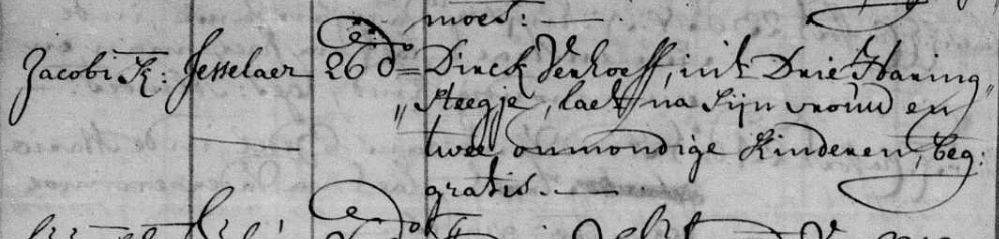 moed: —
Jacobi K: Jesselaer 26 do = Dirck Verhoeff, int Drie Haring„
„steegje, laet na sijn vrouw en
twee onmondige kinderen, beg:
gratis. —